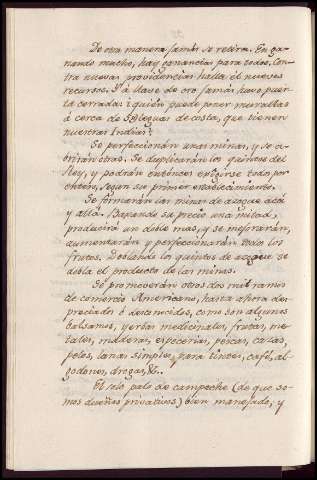 De otra manera jamás se retira. En ga-
nando mucho, hay ganancias para todos. Con-
tra nuevas providencias halla él nuevos
recursos. Y á llave de oro jamás huvo puer-
ta cerrada: ¿quién puede poner murallas
á cerca de leguas de costa, que tienen
nuestras Indias?
Se perfeccionán unas minas, y se a-
brirán otras. Se duplicarán los quintos del
Rey, y podrán entonces exigirse todos por
entero, segun su primer establecimiento.
Se formarán las minas de azogue acá
y allá. Bajando su precio una mitad,
producirá un doble mas, y se mejorarán,
aumentarán y perfeccionarán todos los
frutos. los quintos de azogue se
dobla el producto de las minas.
Se promoverán otros dos mil ramos
de comercio Americano, hasta ahora des-
preciados ó desconocidos, como son algunos
balsamos, yerbas medicinales, frutas, me-
tales, maderas, especerias, pescas, cazas,
peles, lanas simples, para tintes, café, al-
godones, drogas, &c.
El solo palo de campeche (de que so-
mos dueños privativos) bien manejado, y